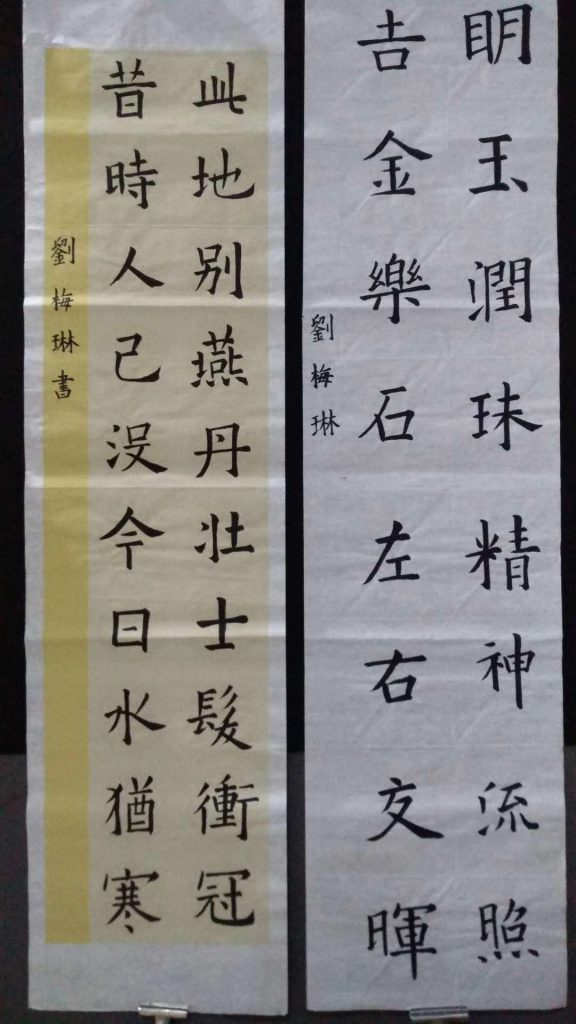 眀玉潤珠精神流照
吉金樂石左右交暉
劉梅琳
此地别燕丹壯士髮衝冠
昔時人已没今日水猶寒
劉梅琳書